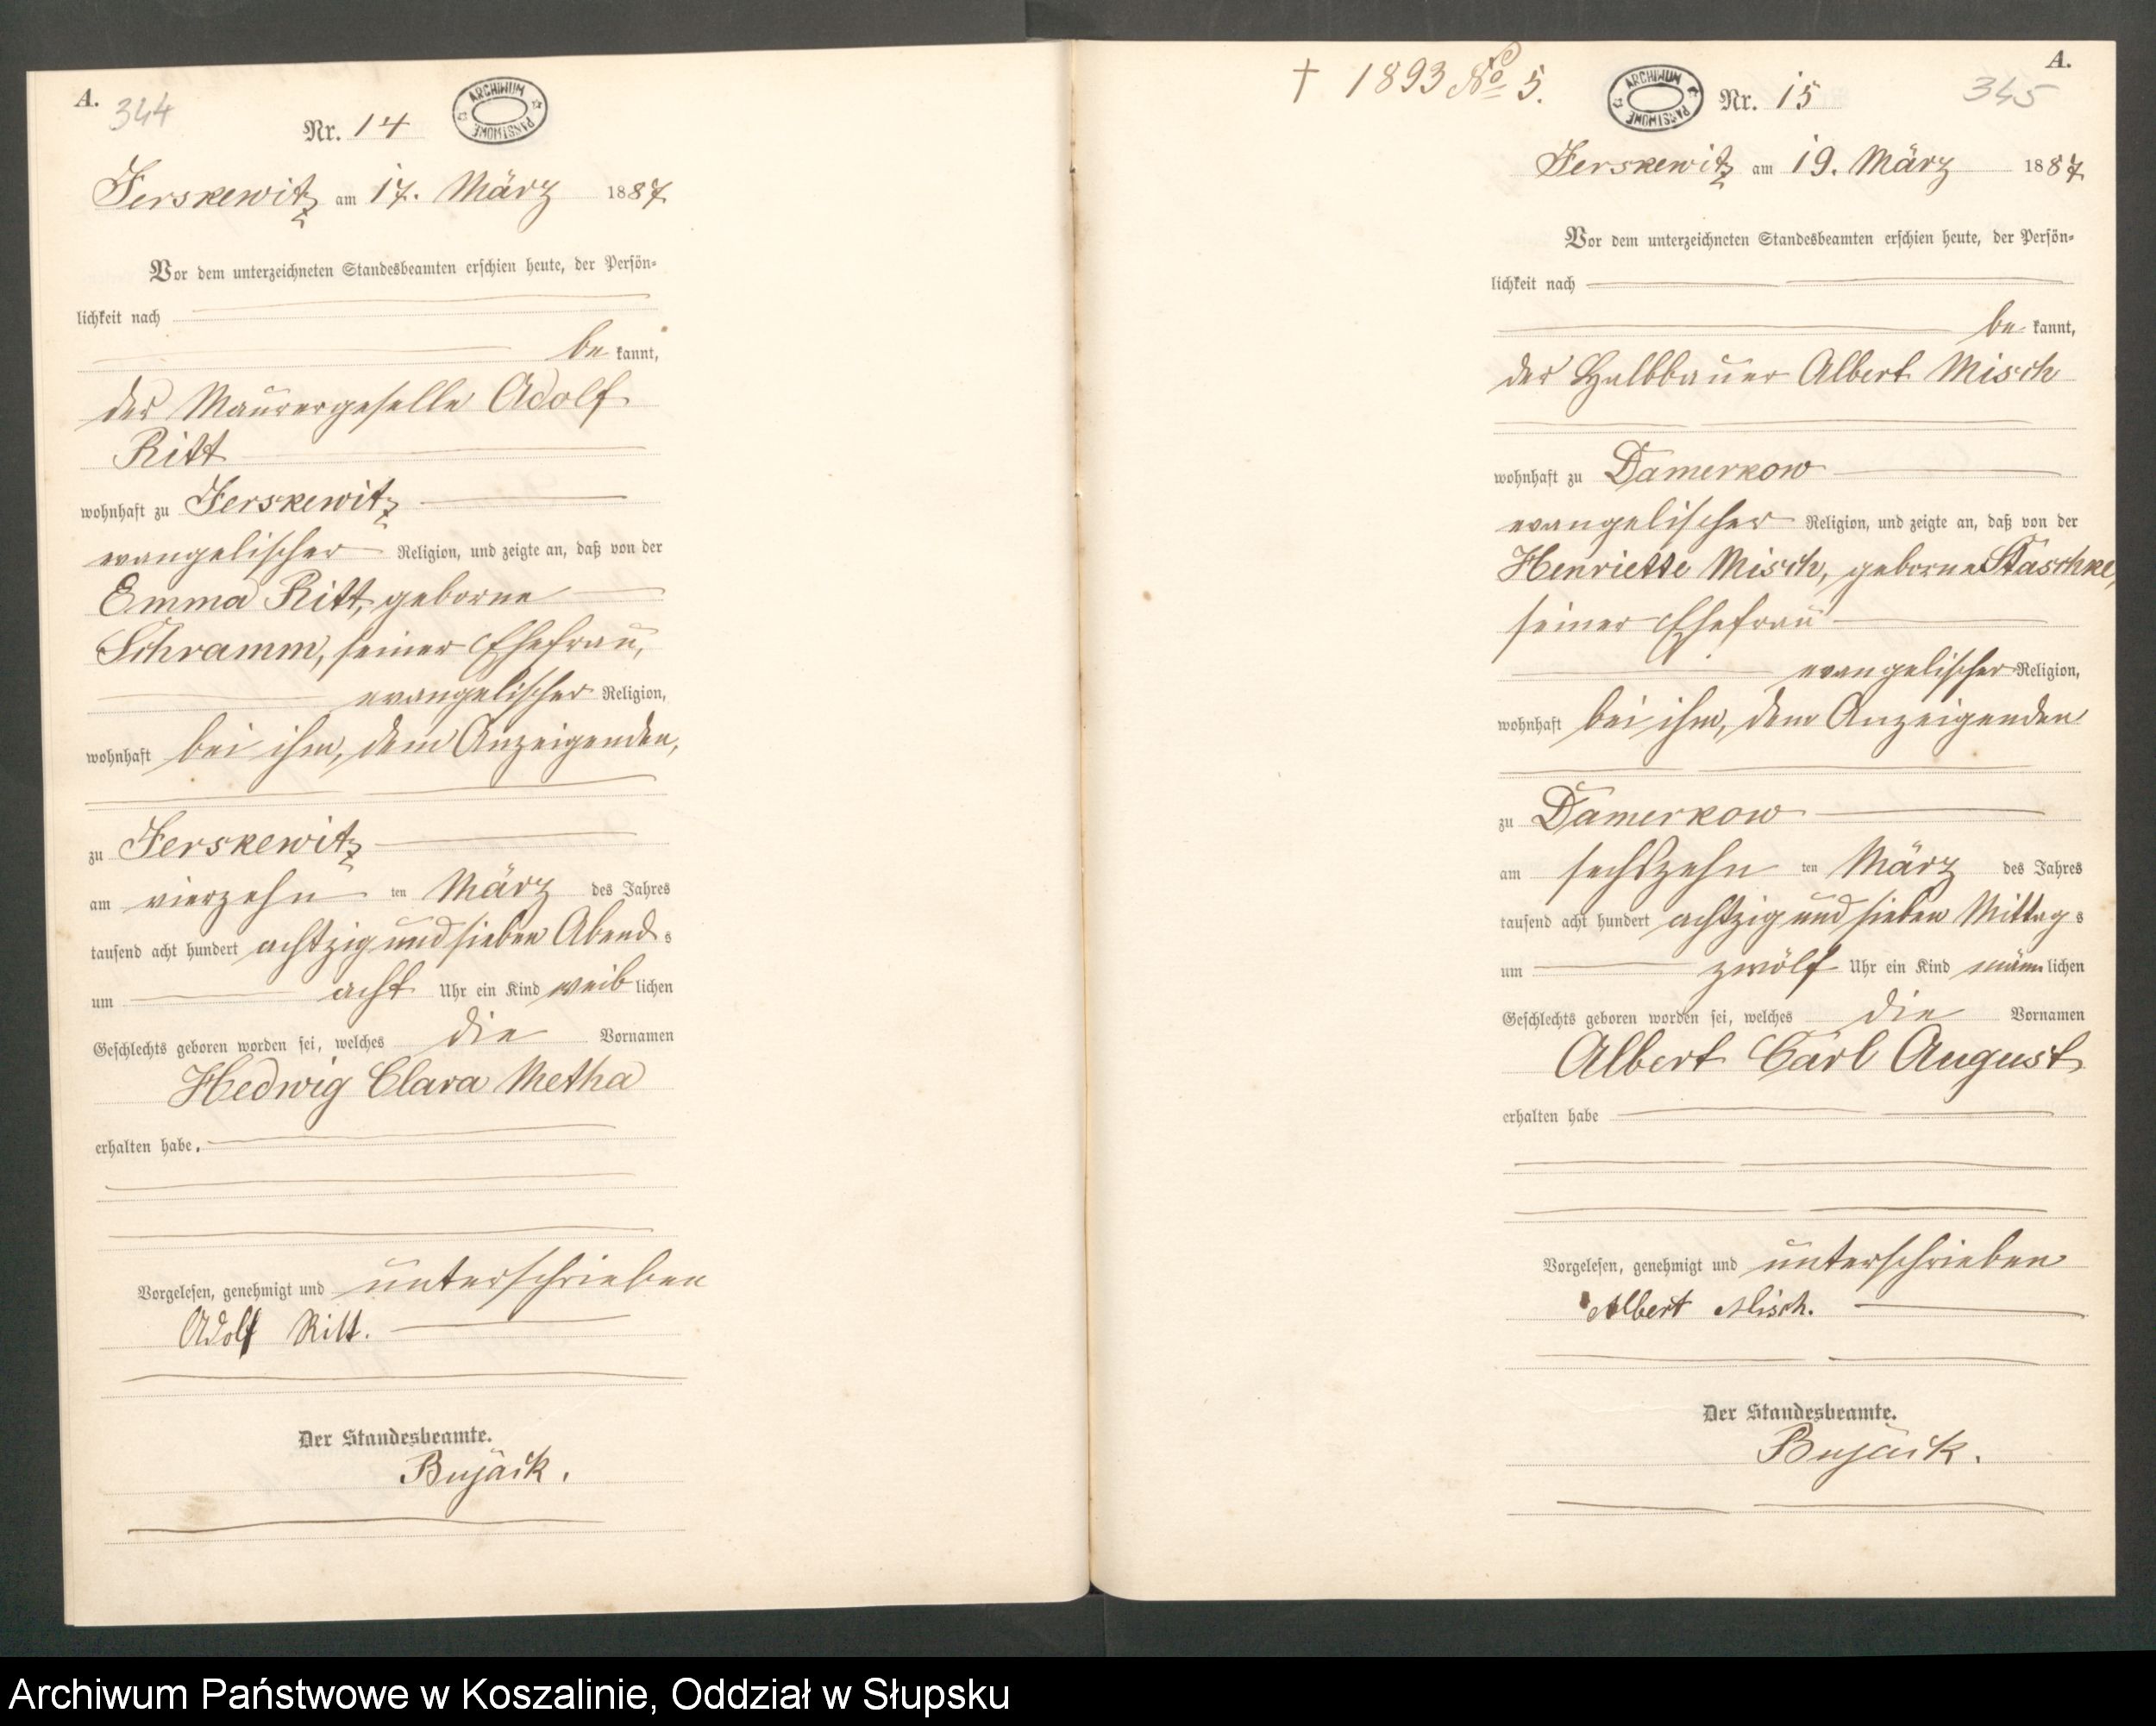 A.
344
Nr. 14
ARCHIWUM PAŃSTWOWE
Jerskewitz am 17. März 1887
Vor dem unterzeichneten Standesbeamten erschien heute, der Persön-
lichkeit nach
be kannt,
der Maurergeselle Adolf
Ritt
wohnhaft zu Jerskewitz
evangelischer Religion, und zeigte an, daß von der
Emma Ritt, geborne
Schramm, seiner Ehefrau,
evangelischer Religion,
wohnhaft bei ihm, dem Anzeigenden,
zu Jerskewitz
am vierzehn ten März des Jahres
tausend acht hundert achtzig und sieben Abend s
um acht Uhr ein Kind weib lichen
Geschlechts geboren worden sei, welches die Vornamen
Hedwig Clara Metha
erhalten habe.
Vorgelesen, genehmigt und unterschrieben
Adolf Ritt.
Der Standesbeamte.
Bujack.
† 1893 No 5.
ARCHIWUM PAŃSTWOWE
Nr. 15
A.
345
Jerskewitz am 19. März 1887
Vor dem unterzeichneten Standesbeamten erschien heute, der Persön-
lichkeit nach
be kannt,
der Halbbauer Albert Misch
wohnhaft zu Damerkow
evangelischer Religion, und zeigte an, daß von der
Henriette Misch, geborne Staschke,
seiner Ehefrau
evangelischer Religion,
wohnhaft bei ihm, dem Anzeigenden
zu Damerkow
am sechszehn ten März des Jahres
tausend acht hundert achtzig und sieben Mittag s
um zwölf Uhr ein Kind männ lichen
Geschlechts geboren worden sei, welches die Vornamen
Albert Carl August
erhalten habe
Vorgelesen, genehmigt und unterschrieben
Albert Misch.
Der Standesbeamte.
Bujack.
Archiwum Państwowe w Koszalinie, Oddział w Słupsku